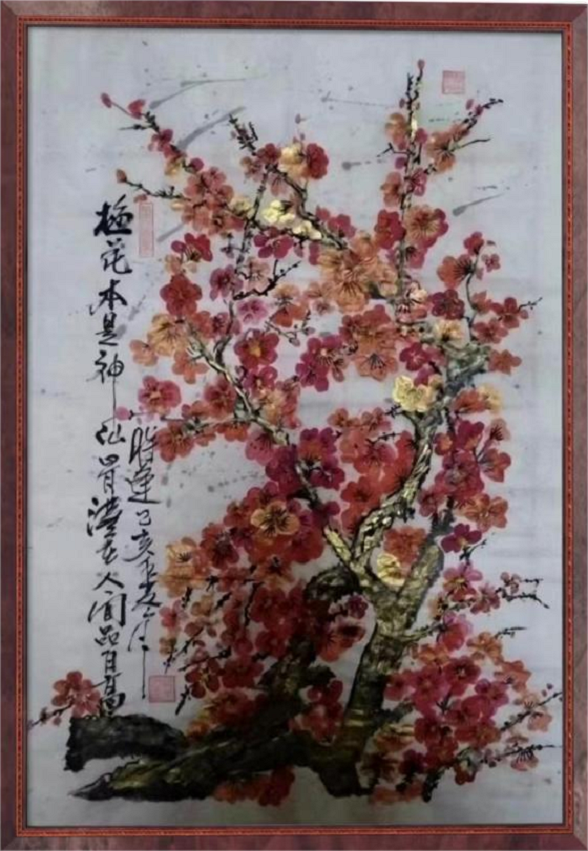 梅花本是神仙骨落在人间品自高
时逢己亥